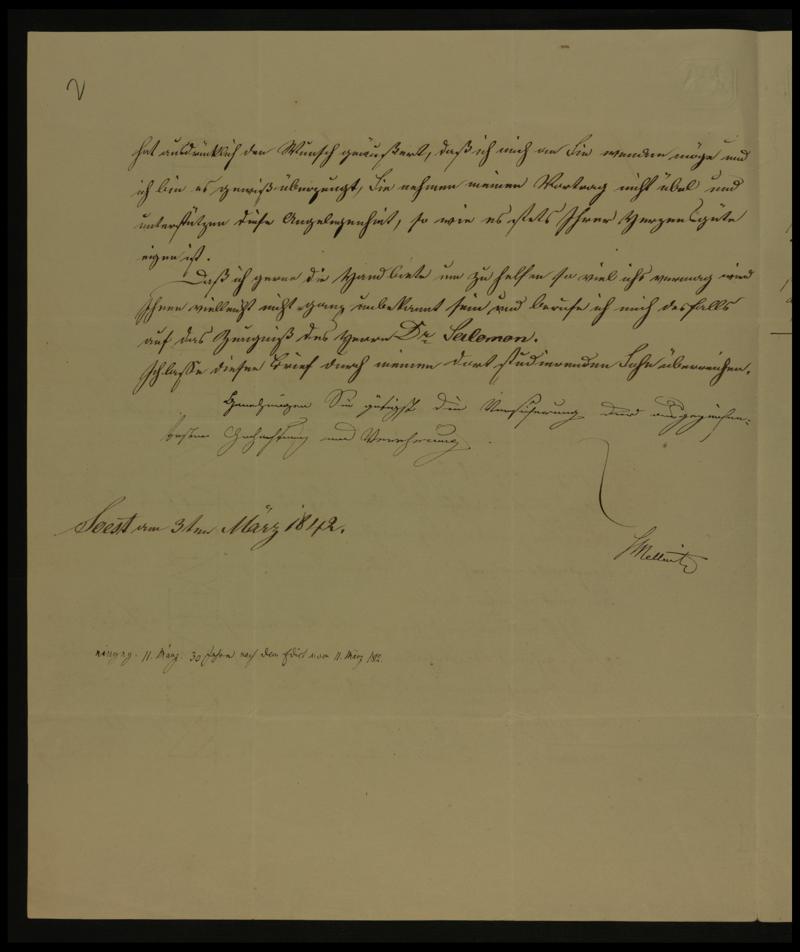 2
hat ausdrücklich den Wunsch geäußert, daß ich mich an Sie wenden möge und
ich bin es gewiß überzeugt, Sie nehmen meinen Vortrag nicht übel und
unterstützen diese Angelegenheit, so wie es stets Ihrer Herzensgüte
eigen ist.
Daß ich gerne die Hand biete um zu helfen so viel ichs vermag wird
Ihnen vielleicht nicht ganz unbekannt sein, und berufe ich mich desfalls
auf das Zeugniß des Herrn Dr Salomon.
Ich lasse diesen Brief durch meinen dort studierenden Sohn überreichen.
Genehmigen Sie gütigst die Versicherung der ausgezeichne-
testen Hochachtung und Verehrung
Soest am 3ten März 1842.
LMellwitz
eingeg. 11. März. 30 Jahre nach dem Edict vom 11. März 1812.